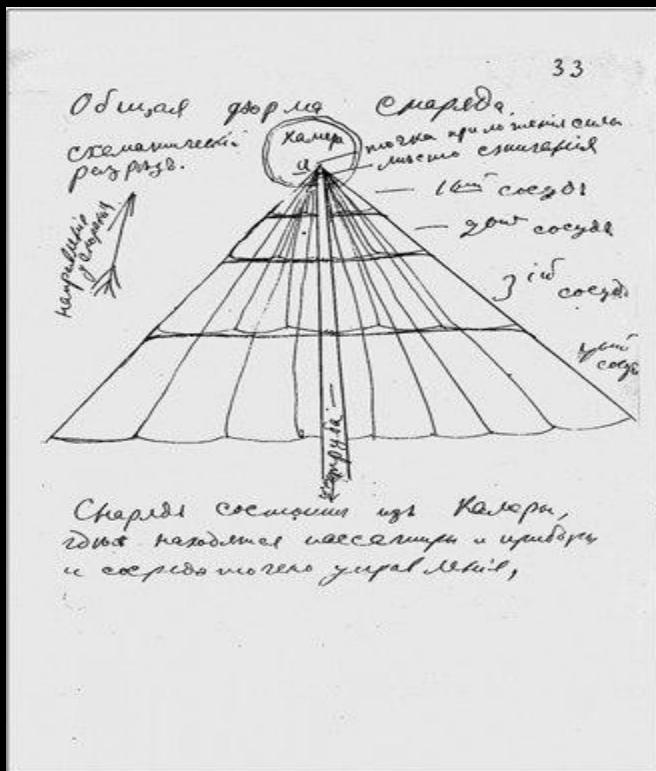 33
Общая форма снаряда.
схематическій
разрѣзъ.
Камера
точка приложенія силы
мѣсто сжиганія
а
1ый сосудъ
2ой сосудъ
3ій
сосудъ
сосудъ
направленіе
ускоренія
труба
Снарядъ состоитъ изъ Камеры,
гдѣ находятся пассажиры и приборы
и сосредоточено управленіе,